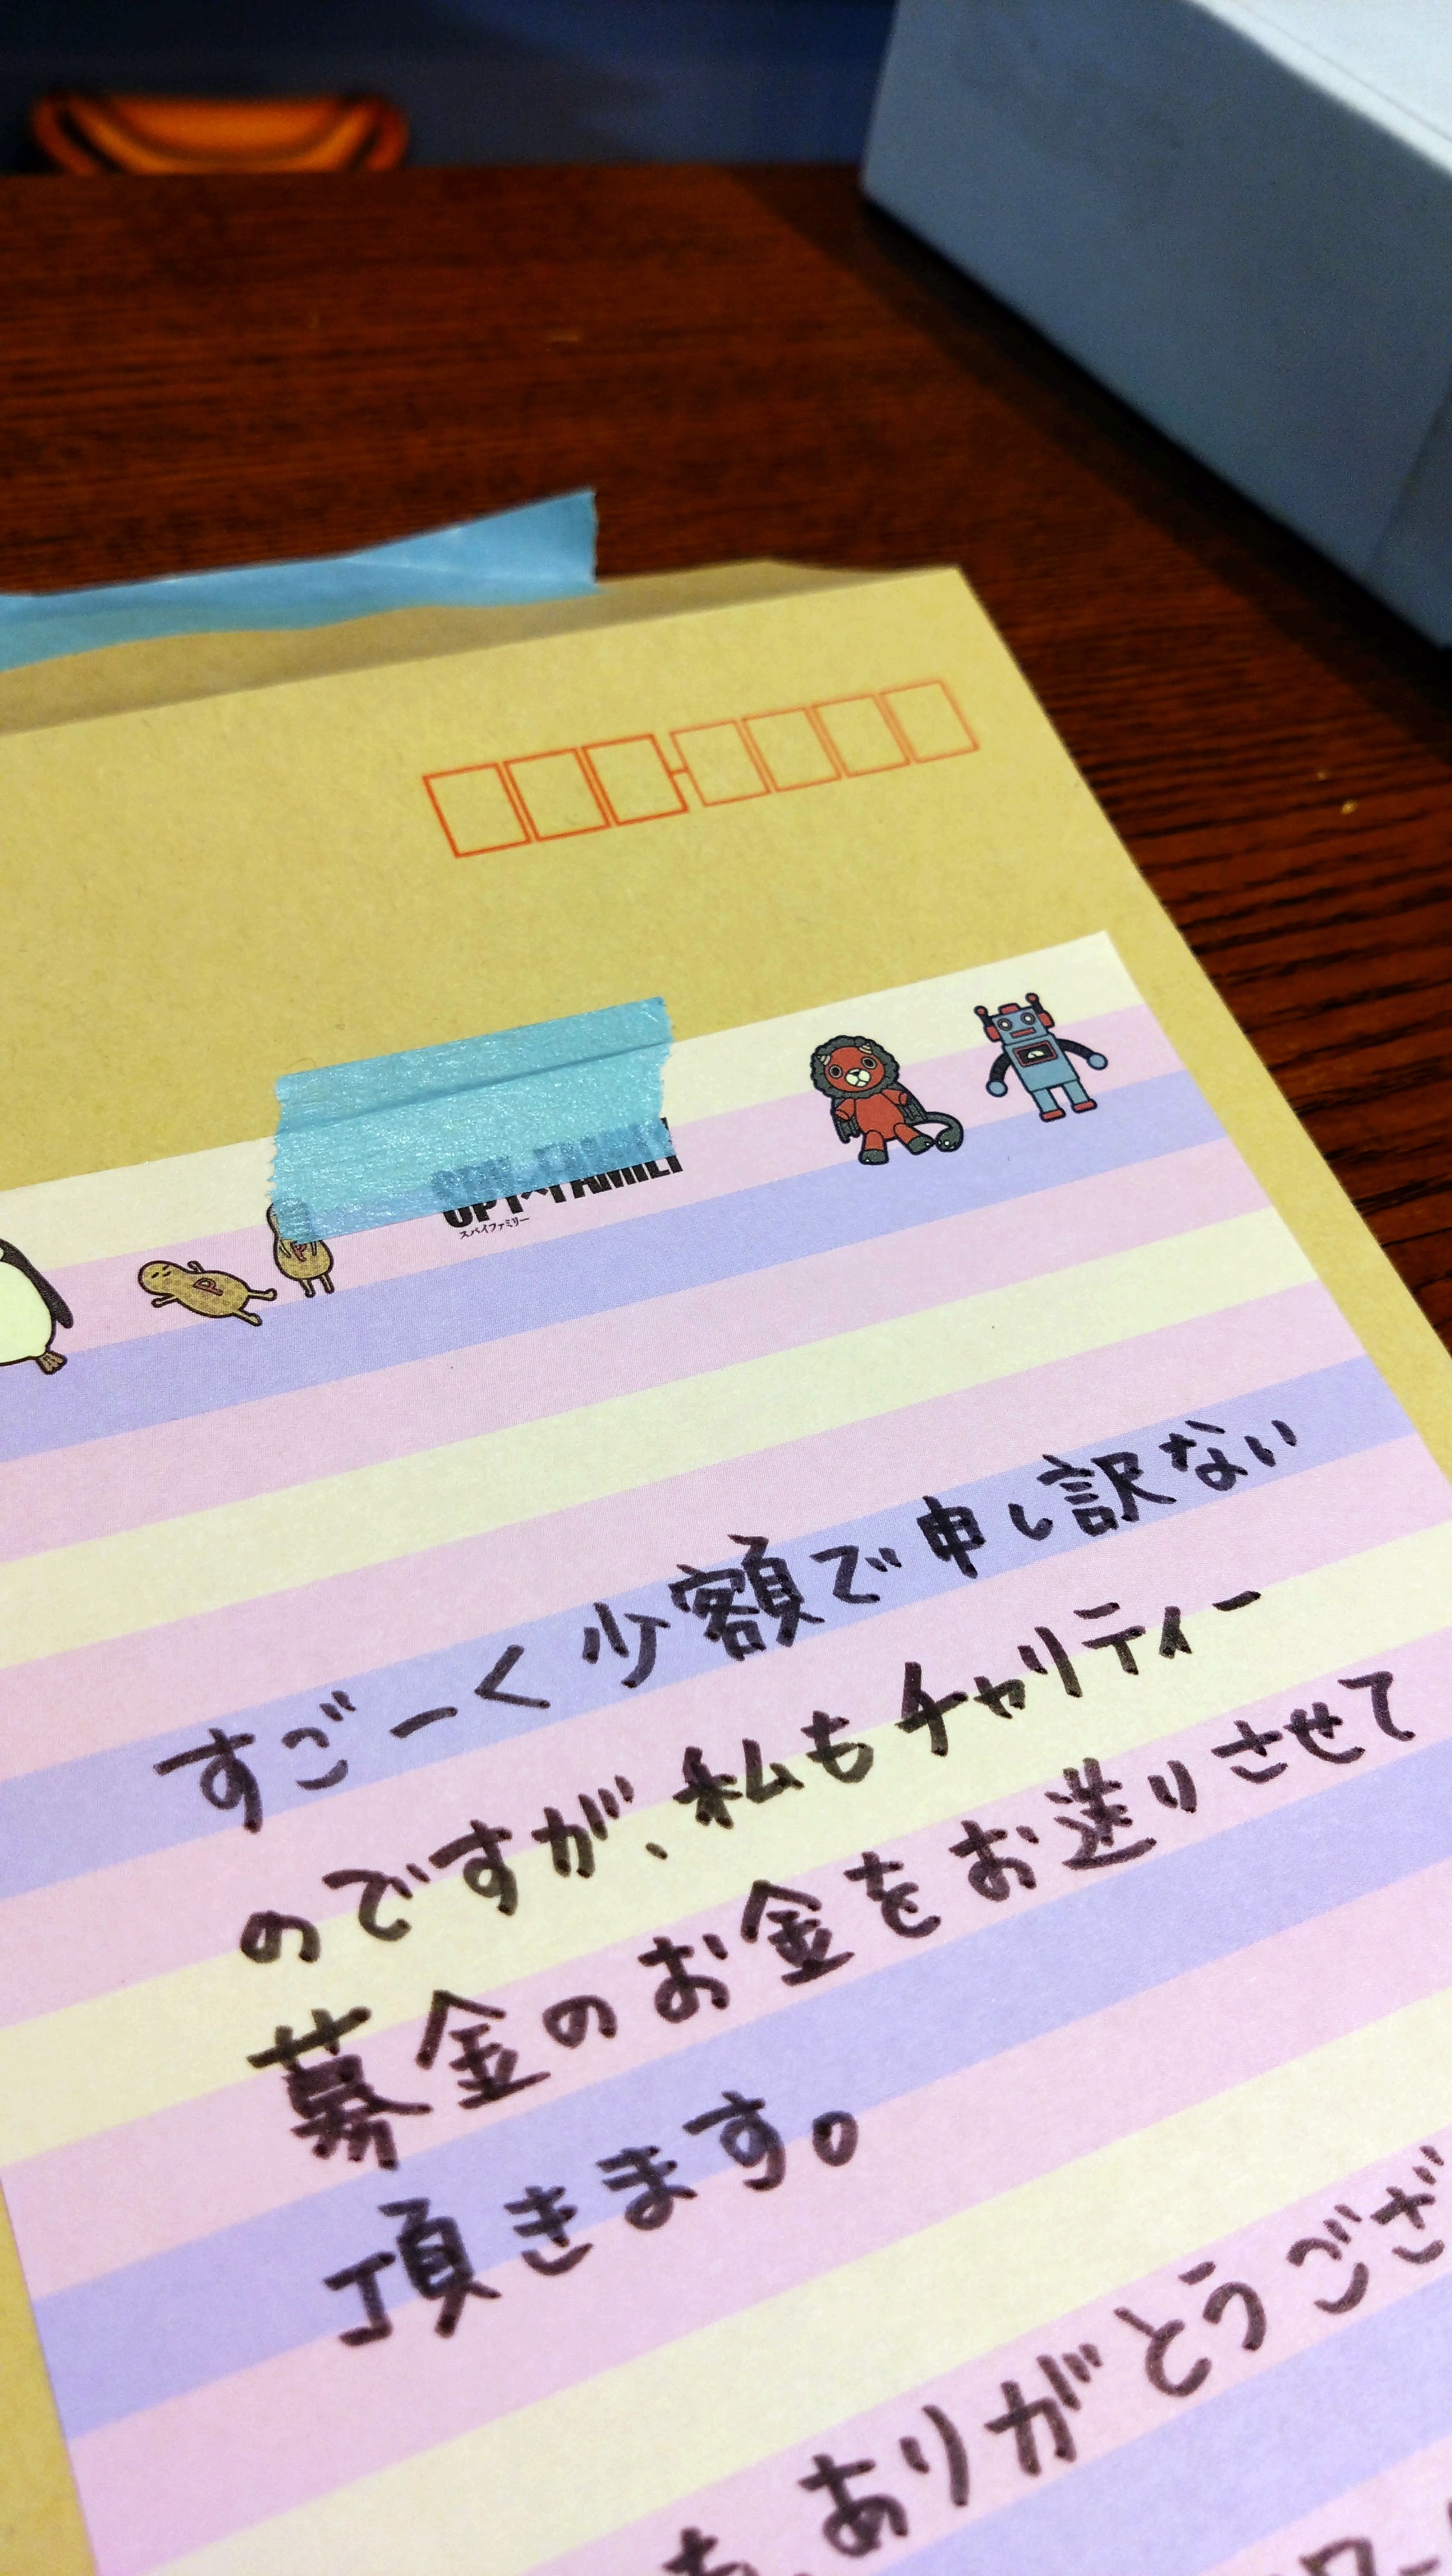 SPY×FAMILY
スパイファミリー
P
P
すごーく少額で申し訳ない
のですが、私もチャリティー
募金のお金をお送りさせて
頂きます。
ありがとうござ